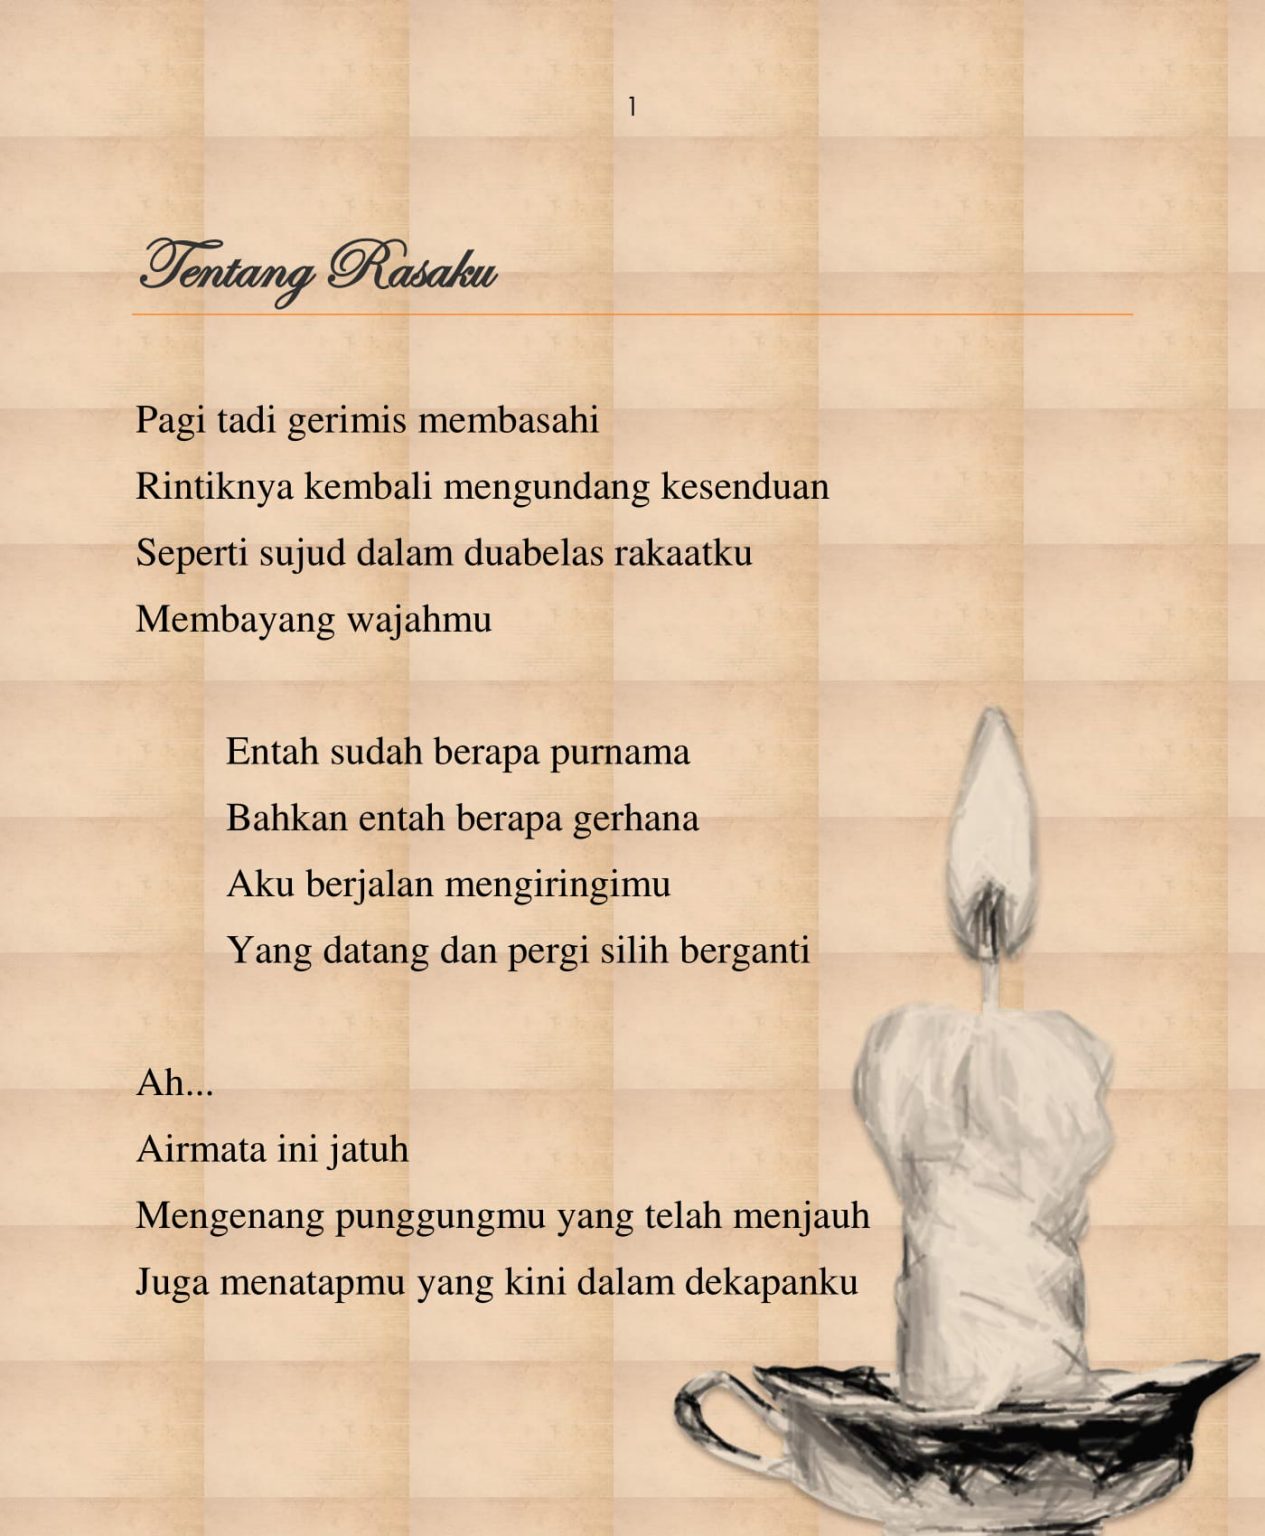 1
Tentang Rasaku
Pagi tadi gerimis membasahi
Rintiknya kembali mengundang kesenduan
Seperti sujud dalam duabelas rakaatku
Membayang wajahmu
Entah sudah berapa purnama
Bahkan entah berapa gerhana
Aku berjalan mengiringimu
Yang datang dan pergi silih berganti
Ah...
Airmata ini jatuh
Mengenang punggungmu yang telah menjauh
Juga menatapmu yang kini dalam dekapanku